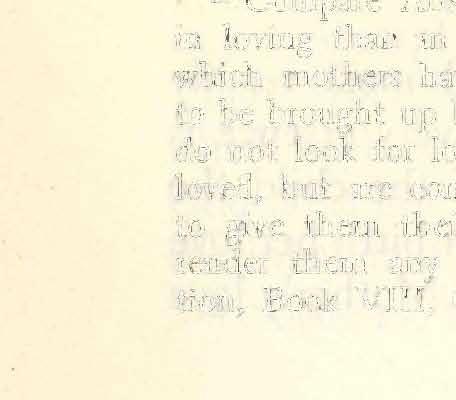 Compare
in loving than in
which mothers
to be brought up
do not look for
loved, but are
to give them
render them any
tion, Book VIII,